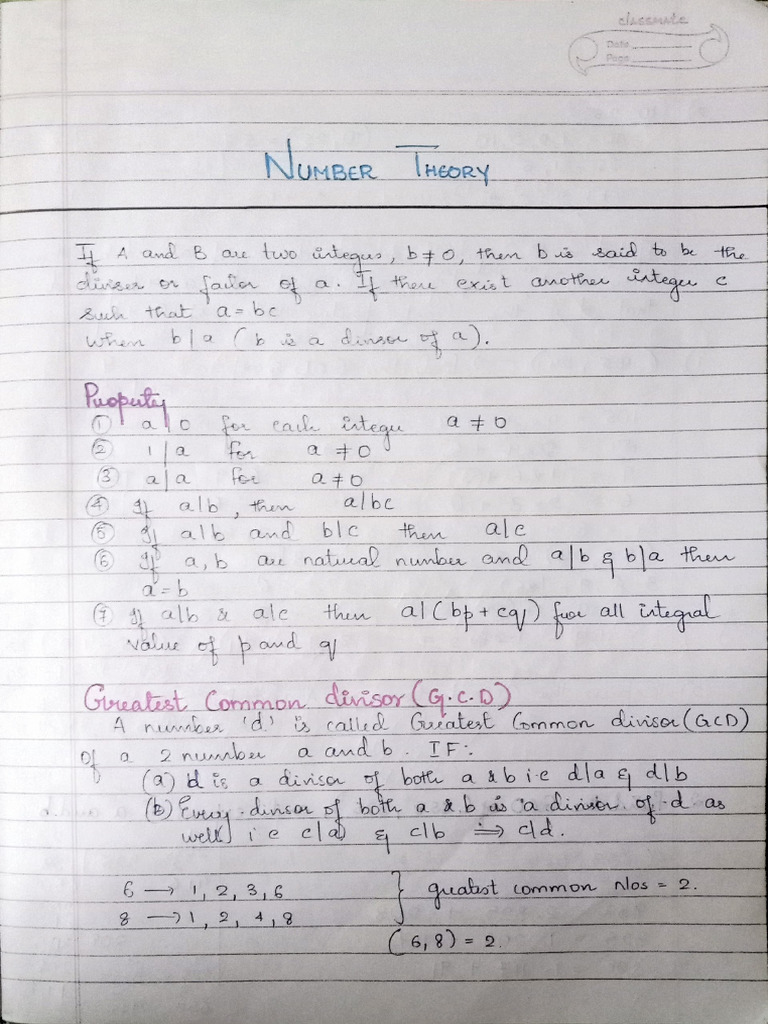 classmate
Date
Page
NUMBER THEORY
If A and B are two integers, b ≠ 0, then b is said to be the
diviser or factor of a. If there exist another integer c
such that a = bc
When b | a ( b is a divisor of a ).
Property
① a | 0 for each integer a ≠ 0
② 1 | a for a ≠ 0
③ a | a for a ≠ 0
④ If a|b , then a|bc
⑤ If a|b and b|c then a|c
⑥ If a, b are natural number and a|b & b|a then
a = b
⑦ If a|b & a|c then a | (bp + cq) for all integral
value of p and q
Greatest Common divisor (G.C.D)
A number 'd' is called Greatest Common divisor (GCD)
of a 2 number a and b. IF:
(a) d is a divisor of both a & b i.e d|a & d|b
(b) Every divisor of both a & b is a divisor of d as
well i e c|a & c|b ⟹ c|d.
6 → 1, 2, 3, 6 } greatest common Nos = 2.
8 → 1, 2, 4, 8
(6, 8) = 2.